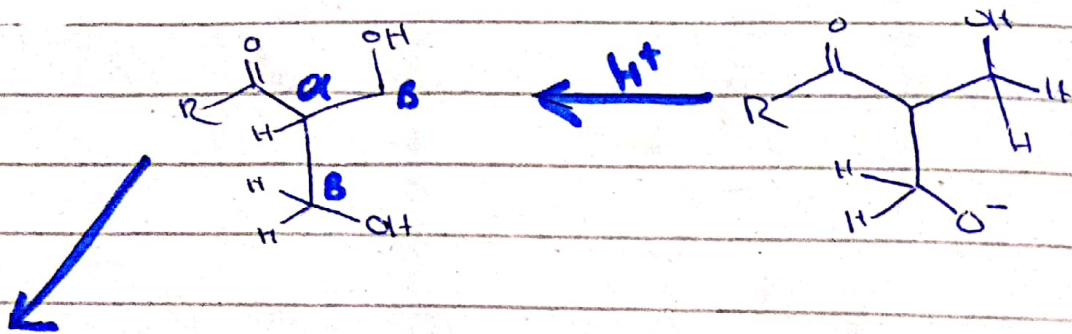 O OH
R α B
H
H B
H OH
H⁺
O OH
R H
H
H
H O⁻